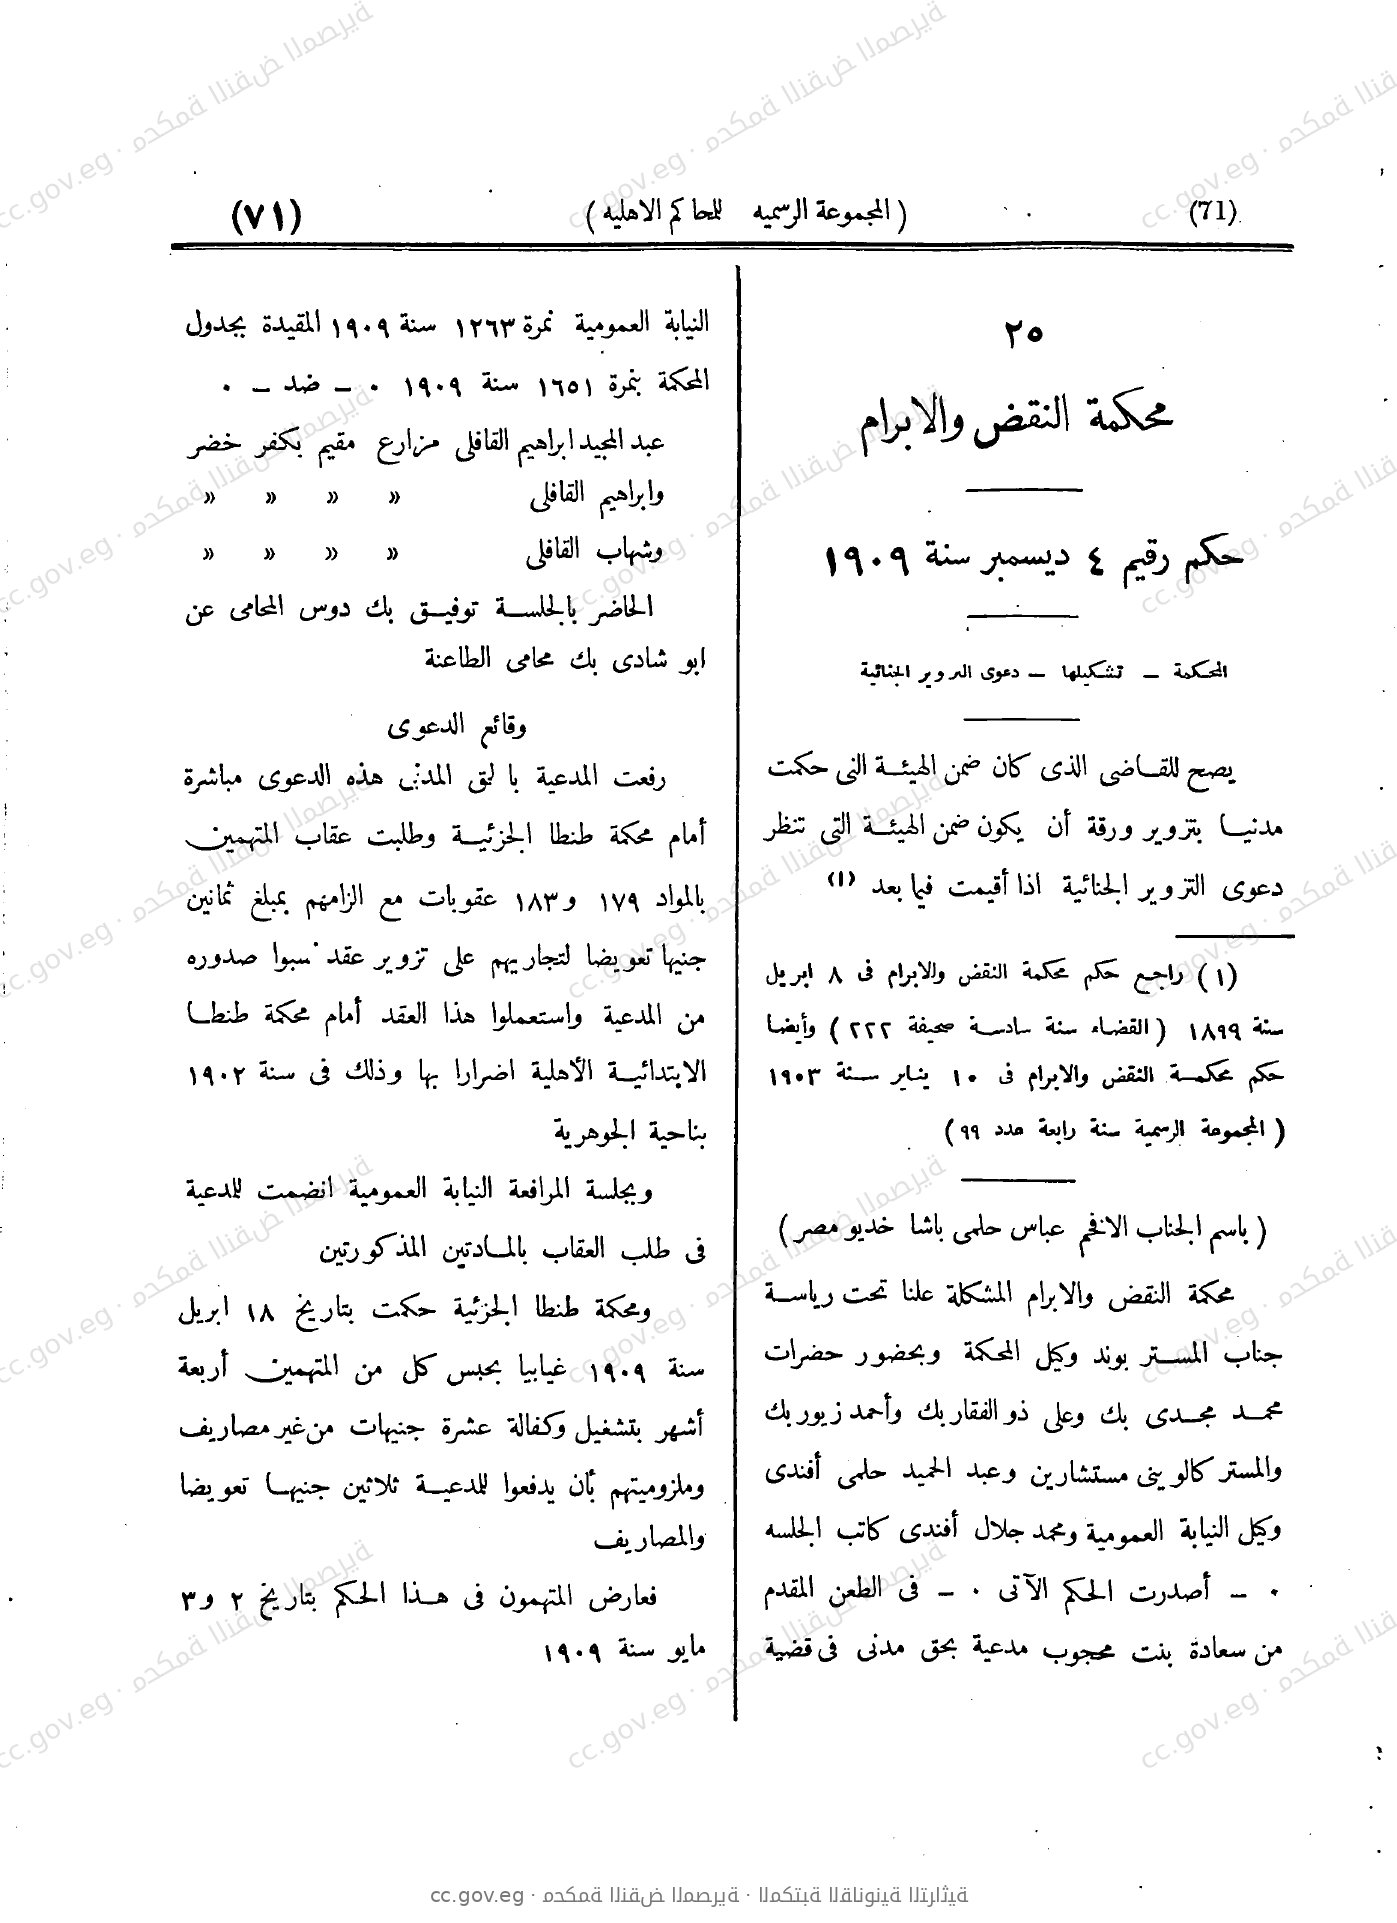 (71) ( المجموعة الرسميه للمحاكم الاهليه ) (٧١)
٢٥
محكمة النقض والابرام
حكم رقيم ٤ ديسمبر سنة ١٩٠٩
المحكمة – تشكيلها – دعوى التزوير الجنائية
يصح للقاضى الذى كان ضمن الهيئة التى حكمت
مدنيا بتزوير ورقة أن يكون ضمن الهيئة التى تنظر
دعوى التزوير الجنائية اذا أقيمت فيما بعد (١)
(١) راجع حكم محكمة النقض والابرام فى ٨ ابريل
سنة ١٨٩٩ ( القضاء سنة سادسة صحيفة ٢٢٢ ) وأيضا
حكم محكمة النقض والابرام فى ١٠ يناير سنة ١٩٠٣
( المجموعة الرسمية سنة رابعة عدد ٩٩ )
( باسم الجناب الافخم عباس حلمى باشا خديو مصر )
محكمة النقض والابرام المشكلة علنا تحت رياسة
جناب المستر بوند وكيل المحكمة وبحضور حضرات
محمد مجدى بك وعلى ذو الفقار بك وأحمد زيور بك
والمستر كالوينى مستشارين وعبد الحميد حلمى أفندى
وكيل النيابة العمومية ومحمد جلال أفندى كاتب الجلسه
٠ – أصدرت الحكم الآتى ٠ – فى الطعن المقدم
من سعادة بنت محجوب مدعية بحق مدنى فى قضية
النيابة العمومية نمرة ١٢٦٣ سنة ١٩٠٩ المقيدة بجدول
المحكمة بنمرة ١٦٥١ سنة ١٩٠٩ ٠ – ضد – ٠
عبد المجيد ابراهيم القافلى مزارع مقيم بكفر خضر
وابراهيم القافلى » » » »
وشهاب القافلى » » » »
الحاضر بالجلسة توفيق بك دوس المحامى عن
ابو شادى بك محامى الطاعنة
وقائع الدعوى
رفعت المدعية بالحق المدنى هذه الدعوى مباشرة
أمام محكمة طنطا الجزئية وطلبت عقاب المتهمين
بالمواد ١٧٩ و١٨٣ عقوبات مع الزامهم بمبلغ ثمانين
جنيها تعويضا لتجاريهم على تزوير عقد نسبوا صدوره
من المدعية واستعملوا هذا العقد أمام محكمة طنطا
الابتدائية الأهلية اضرارا بها وذلك فى سنة ١٩٠٢
بناحية الجوهرية
وبجلسة المرافعة النيابة العمومية انضمت للمدعية
فى طلب العقاب بالمادتين المذكورتين
ومحكة طنطا الجزئية حكمت بتاريخ ١٨ ابريل
سنة ١٩٠٩ غيابيا بحبس كل من المتهمين أربعة
أشهر بتشغيل وكفالة عشرة جنيهات من غير مصاريف
وملزوميتهم بأن يدفعوا للمدعية ثلاثين جنيها تعويضا
والمصاريف
فعارض المتهمون فى هذا الحكم بتاريخ ٢ و٣
مايو سنة ١٩٠٩
cc.gov.eg · محكمة النقض المصرية · المكتبة القانونية التراثية